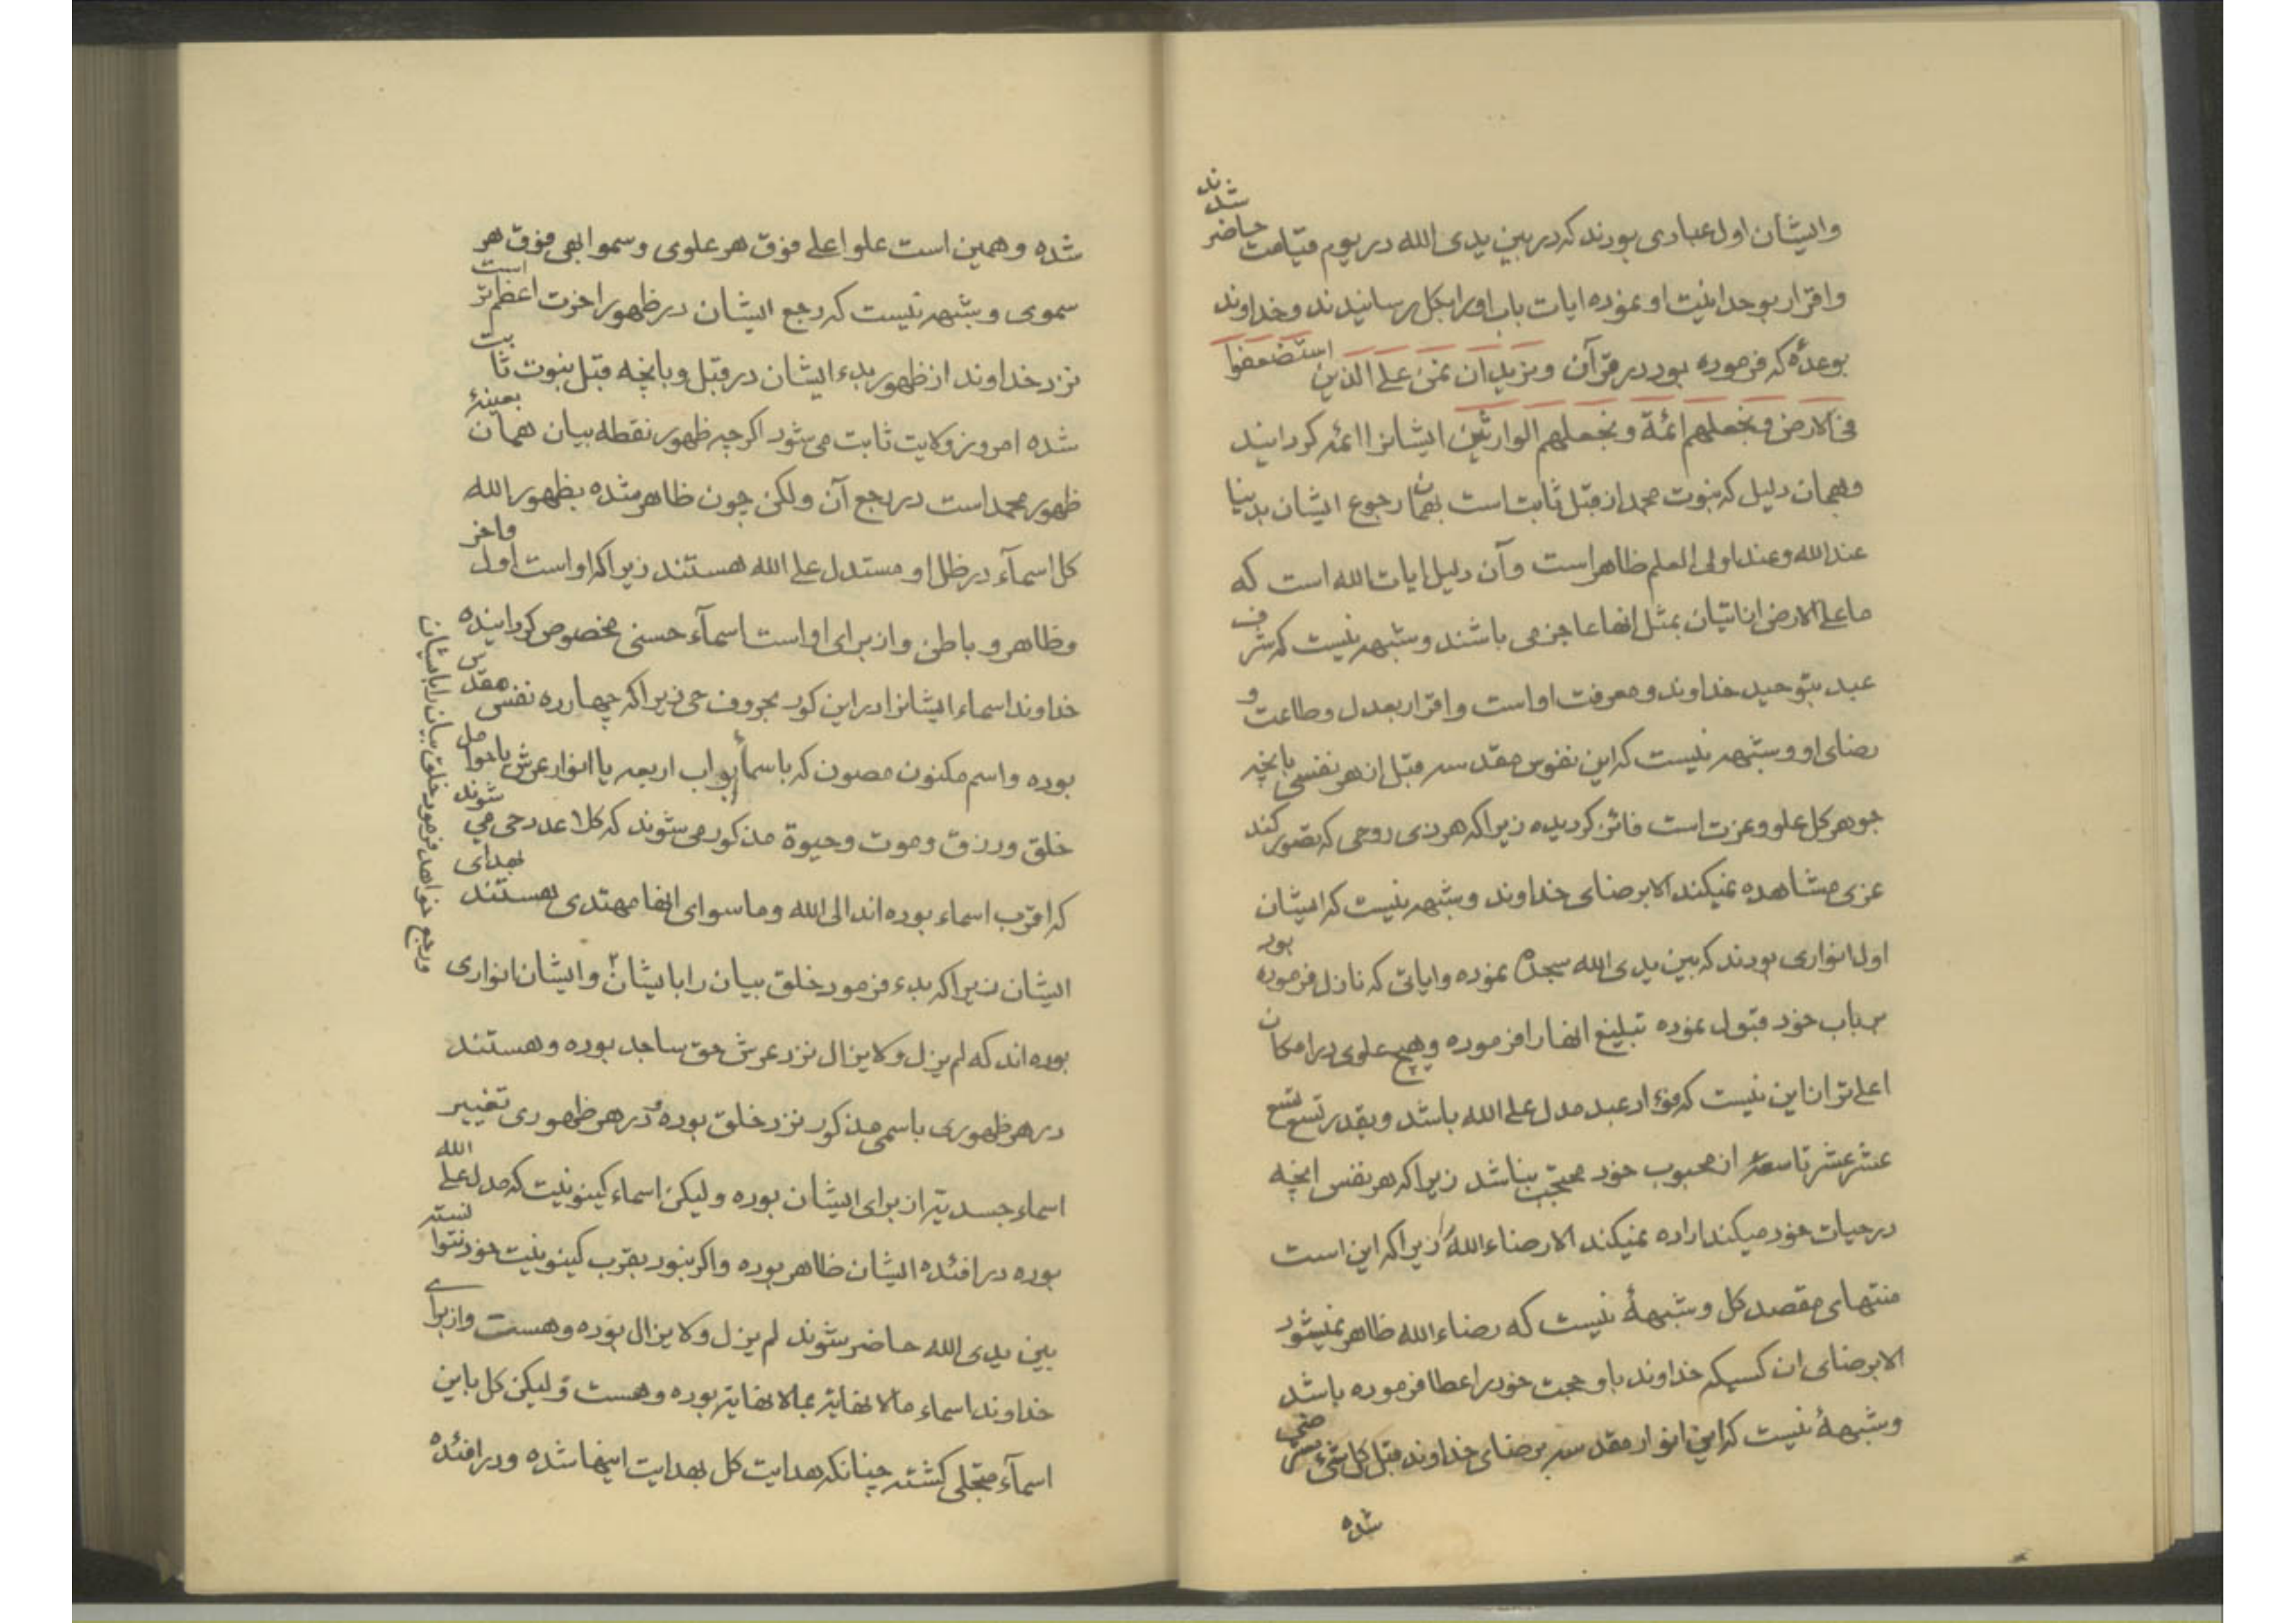 وایشان اول عبادی بودند که در بین یدی الله در یوم قیامت حاضر شدند
واقرار بوحدانیت او نموده ایات باب اورا بکل رسانیدند وخداوند
بوعدهٔ که فرموده بود در قرآن ونرید ان نمن علی الذین استضعفوا
فی الارض ونجعلهم ائمة ونجعلهم الوارثین ایشانرا ائمه کردانید
وبهمان دلیل که نبوت محمد از قبل ثابت است بهمان رجوع ایشان بدنیا
عند الله وعند اولی العلم ظاهر است وآن دلیل ایات الله است که
ما علی الارض از اتیان بمثل انها عاجز می باشند وشبهه نیست که شرف
عبد بتوحید خداوند ومعرفت او است واقرار بعدل وطاعت و
رضای او وشبهه نیست که این نفوس مقدسه قبل از هر نفسی بانچه
جوهر کل علو وعزت است فائز کردیده زیرا که هر ذی روحی که تصور کند
عزی مشاهده نمیکند الا برضای خداوند وشبهه نیست که ایشان
اول انواری بودند که بین یدی الله سجده نموده وایاتی که نازل فرموده بود
بر باب خود قبول نموده تبلیغ انها را فرموده وهیچ علوی در امکان
اعلی تر از این نیست که فؤاد عبد مدل علی الله باشد وبقدر تسع تسع
عشر عشر تاسعه از محبوب خود محتجب نباشد زیرا که هر نفس انچه
در حیات خود میکند اراده نمیکند الا رضاء الله را زیرا که این است
منتهای مقصد کل وشبههٔ نیست که رضاء الله ظاهر نمیشود
الا برضای ان کسیکه خداوند باو حجت خود را عطا فرموده باشد
وشبههٔ نیست که این انوار مقدسه برضای خداوند قبل کل شیء
شده
شده وهمین است علو اعلی فوق هر علوی وسمو ابهی فوق هر
سموی وشبهه نیست که رجع ایشان در ظهور اخرت اعظم تر است
نزد خداوند از ظهور بدء ایشان در قبل وبانچه قبل نبوت ثابت
شده امروز ولایت ثابت می شود اکرچه ظهور نقطه بیان همان بعینهٔ
ظهور محمد است در رجع آن ولکن چون ظاهر شده بظهور الله
کل اسمآء در ظل او مستدل علی الله هستند زیرا که او است اول واخر
وظاهر وباطن واز برای او است اسمآء حسنی مخصوص کردانیده
خداوند اسماء ایشانرا در این کور بحروف حی زیرا که چهارده نفس مقدس
بوده واسم مکنون مصون که باسمأ ابواب اربعه یا انوار عرش یا حوامل
خلق ورزق وموت وحیوة مذکور می شوند که کلا عدد حی می شوند
که اقرب اسماء بوده اند الی الله وما سوای انها مهتدی بهدای هستند
ایشان زیرا که بدء فرمود خلق بیان را بایشان ۲ وایشان انواری
ورجع خواهد فرمود خلق بیان را بایشان
بوده اند که لم یزل ولا یزال نزد عرش حق ساجد بوده وهستند
در هر ظهوری باسمی مذکور نزد خلق بوده ودر هر ظهوری تغییر
اسماء جسدیه از برای ایشان بوده ولیکن اسماء کینونیت که مدل علی الله
بوده در افئده ایشان ظاهر بوده واکر نبود بقرب کینونیت خود نتوانسته
بین یدی الله حاضر شوند لم یزل ولا یزال بوده وهست واز برای
خداوند اسماء ما لا نهایة بما لا نهایة بوده وهست ولیکن کل باین
اسمآء متجلی کشته چنانکه هدایت کل بهدایت اینها شده ودر افئدهٔ